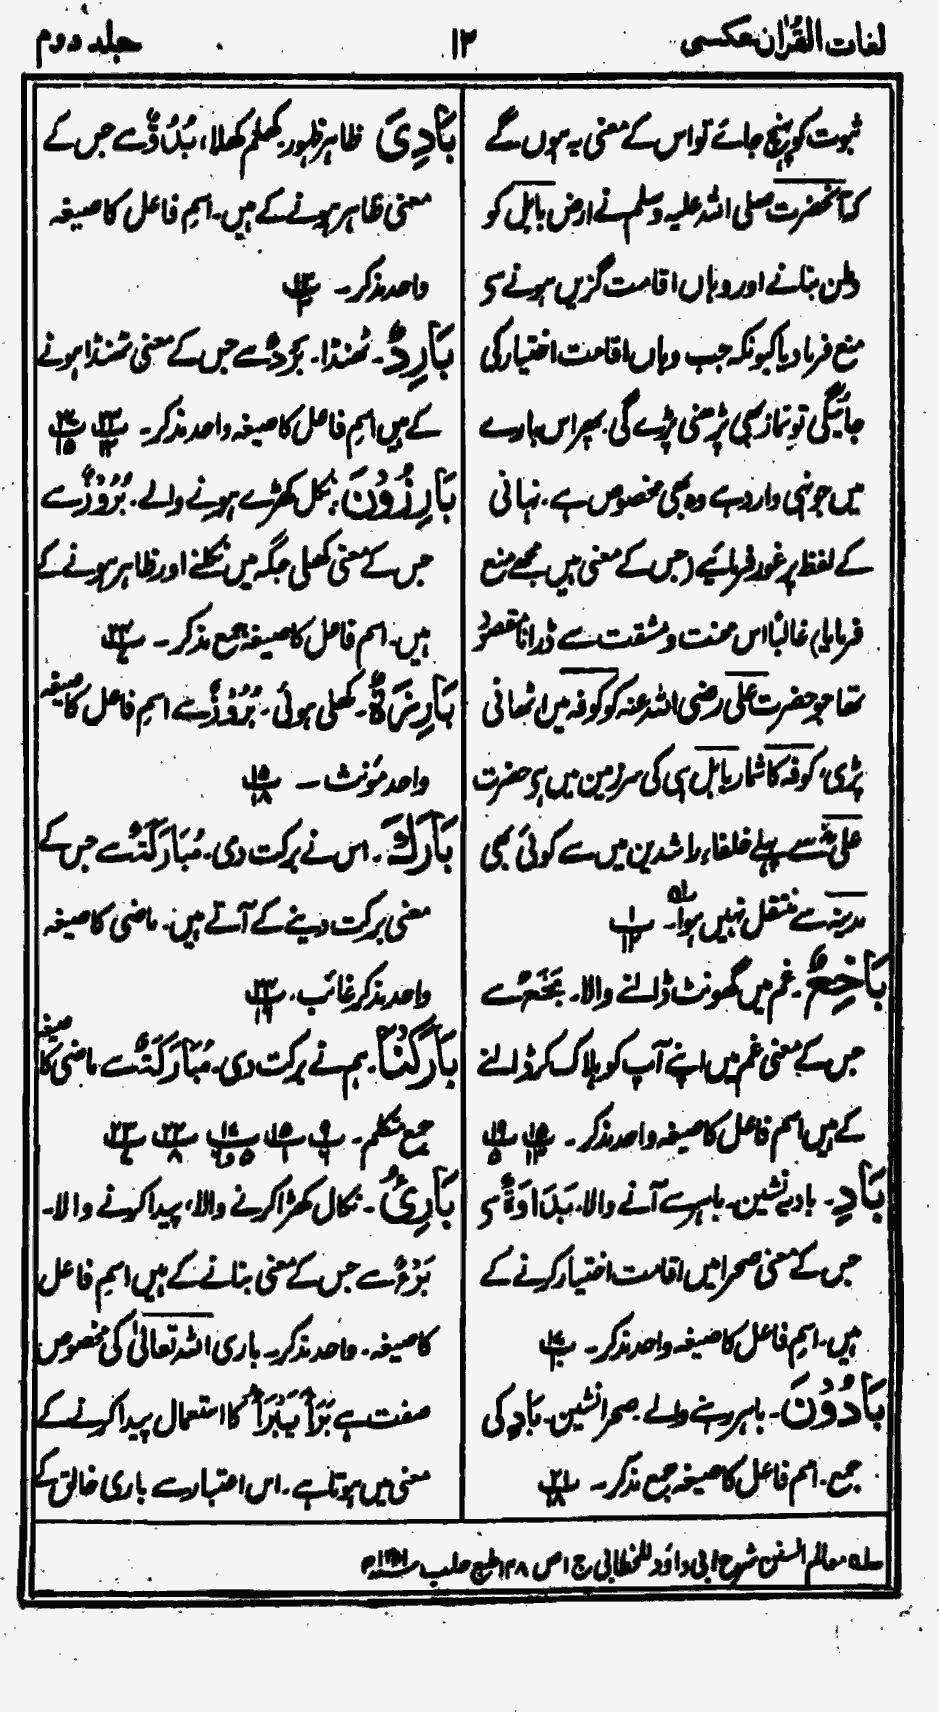 لغات القرآن عکسی
۱۲
جلد دوم
ثبوت کو پہنچ جائے تو اس کے معنی یہ ہوں گے
کہ آنحضرت صلی اللہ علیہ وسلم نے ارض بابل کو
وطن بنانے اور وہاں اقامت گزیں ہونے سے
منع فرما دیا کیونکہ جب وہاں اقامت اختیار کی
جائیگی تو نماز بھی پڑھنی پڑے گی۔ پھر اس بارے
میں جو نہی وارد ہے وہ بھی مخصوص ہے۔ نہانی
کے لفظ پر غور فرمائیے (جس کے معنی ہیں مجھے منع
فرمایا) غالبًا اس محنت و مشقت سے ڈرانا مقصود
تھا جو حضرت علی رضی اللہ عنہ کو کوفہ میں اٹھانی
پڑی، کوفہ کا شمار بابل ہی کی سرزمین میں ہے حضرت
علیؓ سے پہلے خلفاء راشدین میں سے کوئی بھی
مدینہ سے منتقل نہیں ہوا۔ لہ پ ۱ ۱۲
بَاخِعٌ۔ غم میں گھونٹ ڈالنے والا۔ بَخْعٌ سے
جس کے معنی غم میں اپنے آپ کو ہلاک کر ڈالنے
کے ہیں اسم فاعل کا صیغہ واحد مذکر۔ پ ۱۵ ۱۳ پ ۱۹ ۵
بَادٍ۔ بادیہ نشین۔ باہر سے آنے والا، بَدَاوَةٌ سے
جس کے معنی صحرا میں اقامت اختیار کرنے کے
ہیں۔ اسمِ فاعل کا صیغہ واحد مذکر۔ پ ۱۷ ۱۰
بَادُوْنَ۔ باہر رہنے والے۔ صحرا نشین۔ بَادٍ کی
جمع۔ اسم فاعل کا صیغہ جمع مذکر۔ پ ۲۱ ۱۸
بَادِيَ ظاہر ظہور۔ کھلم کھلا، بُدُوٌّ سے جس کے
معنی ظاہر ہونے کے ہیں۔ اسمِ فاعل کا صیغہ
واحد مذکر۔ پ ۱۲ ۳
بَارِدٌ۔ ٹھنڈا۔ بَرْدٌ سے جس کے معنی ٹھنڈا ہونے
کے ہیں اسمِ فاعل کا صیغہ واحد مذکر۔ پ ۲۳ ۱۲ پ ۲۷ ۱۵
بَارِزُوْنَ: نکل کھڑے ہونے والے۔ بُرُوْزٌ سے
جس کے معنی کھلی جگہ میں نکلنے اور ظاہر ہونے کے
ہیں۔ اسم فاعل کا صیغہ جمع مذکر۔ پ ۲۴ ۷
بَارِزَةً۔ کھلی ہوئی۔ بُرُوْزٌ سے اسمِ فاعل کا صیغہ
واحد مؤنث۔ پ ۱۵ ۱۸
بَارَكَ۔ اس نے برکت دی۔ مُبَارَكَةٌ سے جس کے
معنی برکت دینے کے آتے ہیں۔ ماضی کا صیغہ
واحد مذکر غائب۔ پ ۲۴ ۱۶
بَارَكْنَا۔ ہم نے برکت دی۔ مُبَارَكَةٌ سے ماضی کا صیغہ
جمع متکلم۔ پ ۹ ۶ پ ۱۵ ۱ پ ۱۷ ۵ و ۶ پ ۲۲ ۸ پ ۲۳ ۷
بَارِئُ۔ نکال کھڑا کرنے والا، پیدا کرنے والا۔
بَرْءٌ سے جس کے معنی بنانے کے ہیں اسمِ فاعل
کا صیغہ۔ واحد مذکر۔ باری اللہ تعالیٰ کی مخصوص
صفت ہے بَرَأَ یَبْرَأُ کا استعمال پیدا کرنے کے
معنی میں ہوتا ہے۔ اس اعتبار سے باری خالق کے
لہ معالم السنن شرح ابی داؤد للخطابی ج ۱ ص ۱۴۸ طبع حلب